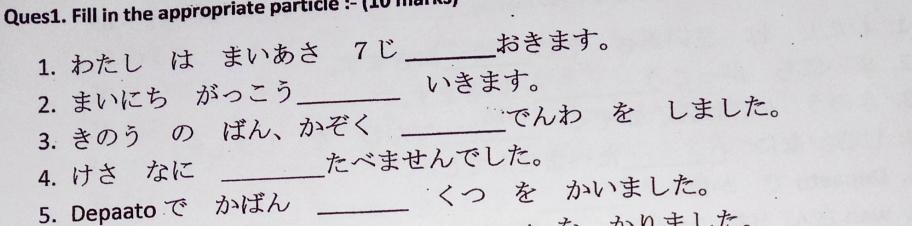 Ques1. Fill in the appropriate particle :- (10 marks)
1. わたし は まいあさ 7じ ______ おきます。
2. まいにち がっこう ______ いきます。
3. きのう の ばん、かぞく ______ でんわ を しました。
4. けさ なに ______ たべませんでした。
5. Depaato で かばん ______ くつ を かいました。